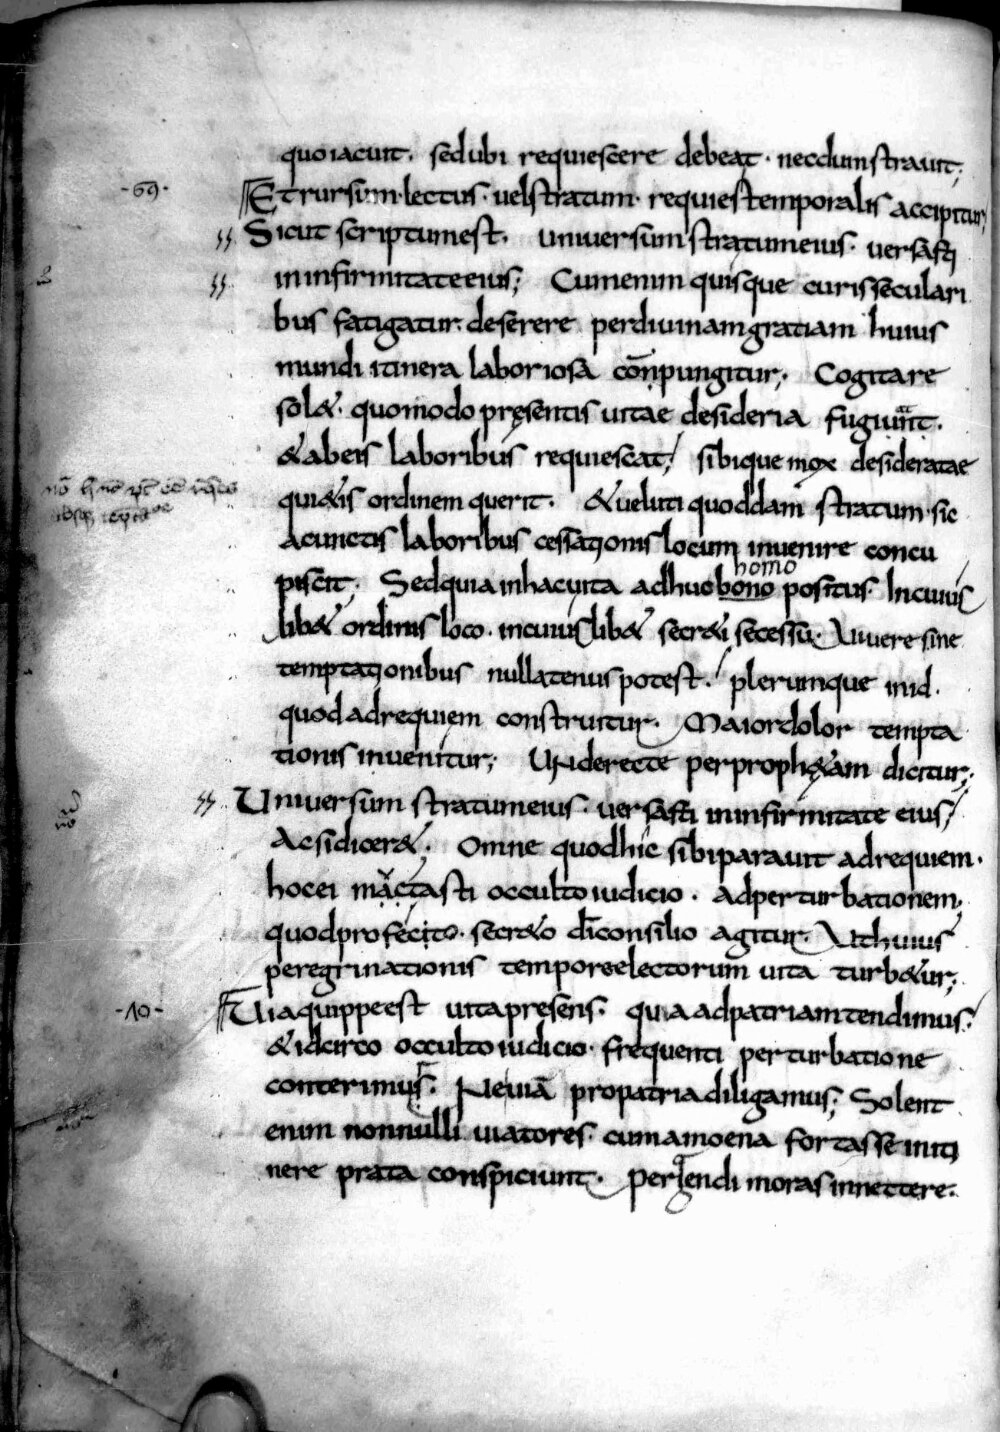 quo iacuit. sed ubi requiescere debeat. necdum strauit;
-69-
Et rursum. lectus. uel stratum. requies temporalis accipitur;
Sicut scriptum est. uniuersum stratum eius. uersasti
in infirmitate eius; Cum enim quisque curis seculari
bus fatigatur. deserere per diuinam gratiam huius
mundi itinera laboriosa co̅npungitur; Cogitare
sol&. quomodo pręsentis uitae desideria fugiunt.
& ab eis laboribus requiescat; sibique mox desideratae
qui&is ordinem querit. & ueluti quoddam stratum. sic
a cunctis laboribus cessationis locum inuenire concu
piscit. Sed quia in hac uita adhuc bono positus. In cuius
homo
lib& ordinis loco. in cuius lib& secr&i secessu. Viuere sine
temptationibus nullatenus potest. plerumque in id.
quod ad requiem construitur. Maior dolor tempta
tionis inuenitur; Vnde recte per proph&am dicitur;
Uniuersum stratum eius. uersasti in infirmitate eius;
Ac si dicer&. Omne quod hic sibi parauit ad requiem.
hoc ei mactasti occulto iudicio. ad perturbationem.
quod profecto. secr&o di̅ consilio agitur. Vt huius
peregrinationis tempore electorum uita turb&ur;
-70-
Uia quippe est uita presens. qua ad patriam tendimus.
& idcirco occulto iudicio. frequenti perturbatione
conterimur. Ne uia̅ pro patria diligamus; Solent
enim nonnulli uiatores. cum amoena fortasse in iti
nere prata conspiciunt. pergendi moras innectere.